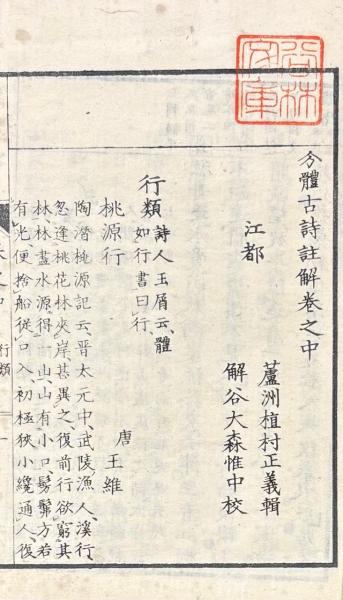 尚林文庫
分體古詩註解卷之中
江都
蘆洲植村正義輯
解谷大森惟中校
行類 詩人玉屑云、體
如行書曰行、
桃源行
唐王維
陶潛桃源記云、晋太元中、武陵漁人、溪行、
忽逢桃花林、夾岸甚異之、復前行欲窮其
林、林盡水源、得一山、山有小口、髣髴方若
有光、便捨船、從口入、初極狹小、纔通人、復
行類
一